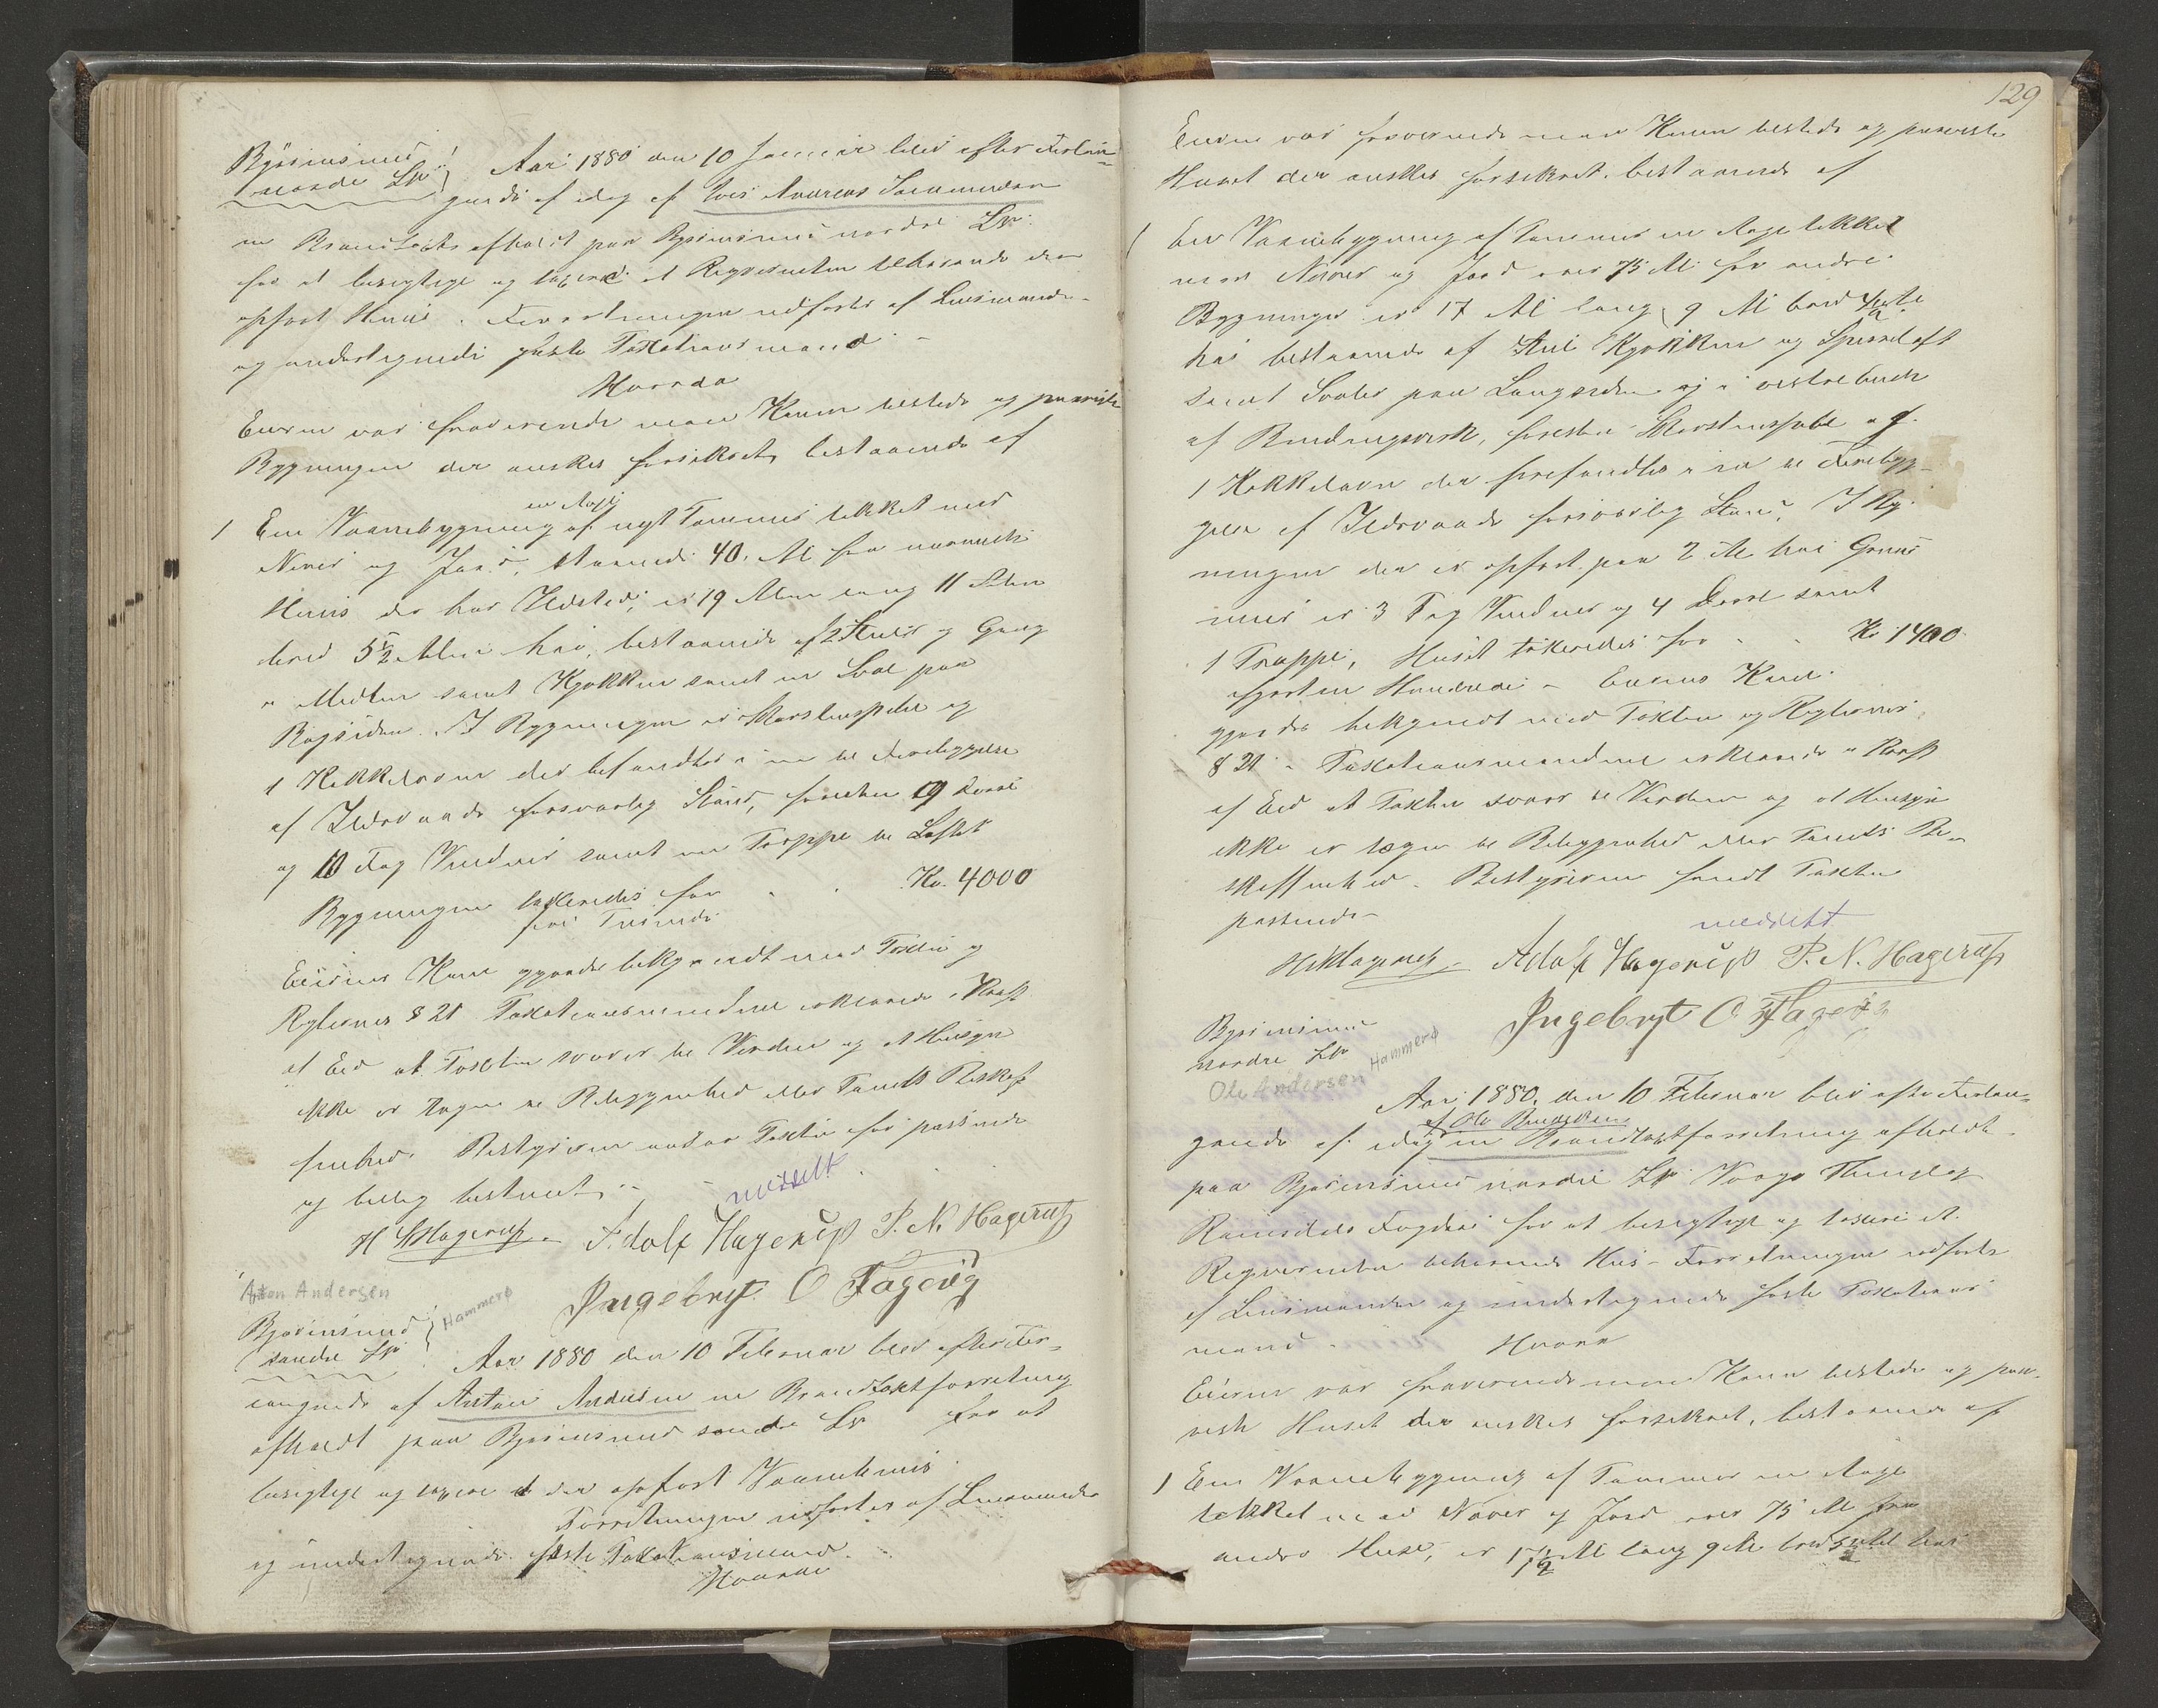 Bjørnsund
nordre Lv. Aar 1880 den 10 Januar blev efter Forlan-
gende af idag af Iver Andreas Iversen
en Brandtaxt afholdt paa Bjørnsund nordre Lv.
for at besigtige og taxere et Reqvirenten tilhørende der
opført Huus. Forretningen udførtes af Lensmanden
og undertegnede faste Taxationsmænd
Hvorda
Eieren var fraværende men Konen tilstede og paaviste
Bygningen der ønskes forsikret, bestaaende af
en Etage
1 Een Vaanebygning af nyt Tømmer tækket med
Næver og Jord, staaende 40 Al fra nærmeste
Huus der har Ildsted, er 19 Alen lang 11 Alen
bred 5½ Alen høi, bestaaende af 2 Stuer og Gang
i Midten samt Kjøkken samt en Sval paa
Bagsiden. I Bygningen er Skorstenspibe og
1 Kakkelovn der befandtes i en til Forebyggelse
af Ildsvaade forsvarlig Stand, foruden 9 Døre
og 10 Fag Vinduer samt en Trappe til Loftet
Bygningen taxeredes for Kr. 4000
fire Tusinde
Eierens Kone gjordes bekjendt med Taxten og
Reglernes § 21 Taxationsmændene erklærede i Kraft
af Eed at Taxten svarer til Værdien og at Hensyn
ikke er tagen til Beliggenhed eller Tomtens Beskaf-
fenhed. Bestyreren ansaa Taxten for passende
og billig bestemt.
meddelt
H Hagerup Adolf Hagerup P. N. Hagerup
Ingebrigt O Fagervig
Anton Andersen
Hammerø
Bjørnsund
søndre Lv. Aar 1880 den 10 Februar blev efter For-
langende af Anton Andersen en Brandtaxtforretning
afholdt paa Bjørnsund søndre Lv for at
besigtige og taxere et der opført Vaanehuus
Forretningen udførtes af Lensmanden
og undertegnede faste Taxationsmænd.
Hvorda
129
Eieren var fraværende men Konen tilstede og paaviste
Huset der ønskes forsikret bestaaende af
1 En Vaanebygning af Tømmer en Etage tækket
med Næver og Jord over 75 Al fra andre
Bygninger er 17 Al lang 9 Al bred 4½ Al
høi bestaaende af Stue Kjøkken og Spiseloft
samt Svaler paa Langsiden og i vestre Ende
af Bindingsverk, foruden Skorstenspibe og
1 Kakkelovn der forefandtes i en til Forebyg-
gelse af Ildsvaade forsvarlig Stand. I Byg-
ningen der er opført paa 2 Al høi Grund
muur er 3 Fag Vinduer og 4 Døre samt
1 Trappe, Huset taxeredes for Kr 1400
fjorten Hundrede Eierens Kone
gjordes bekjendt med Taxten og Reglernes
§ 21 Taxationsmændene erklærede i Kraft
af Eed at Taxten svarer til Værdien og at Hensyn
ikke er tagen til Beliggenhed eller Tomtens Be-
skaffenhed. Bestyreren fandt Taxten
passende
meddelt
H Hagerup Adolf Hagerup P. N. Hagerup
Ingebrigt O Fagervig
Bjørnsund
nordre Lv
Ole Andersen Hammerø
Aar 1880, den 10 Februar blev efter Forlan-
af Ole Andersen
gende af idag en Brandtaxtforretning afholdt
paa Bjørnsund nordre Lv Vaagø Thinglag
Romsdals Fogderi for at besigtige og taxere et
Reqvirenten tilhørende Hus. Forretningen udførtes
af Lensmanden og undertegnede faste Taxations
mænd
Hvorda
Eieren var fraværende men Konen tilstede og paa-
viste Huset der ønskes forsikret, bestaaende af
1 Een Vaanebygning af Tømmer en Etage
tækket med Næver og Jord over 75 Al fra
andre Huse, er 17½ Al lang 9 Al bred 5½ Al høi